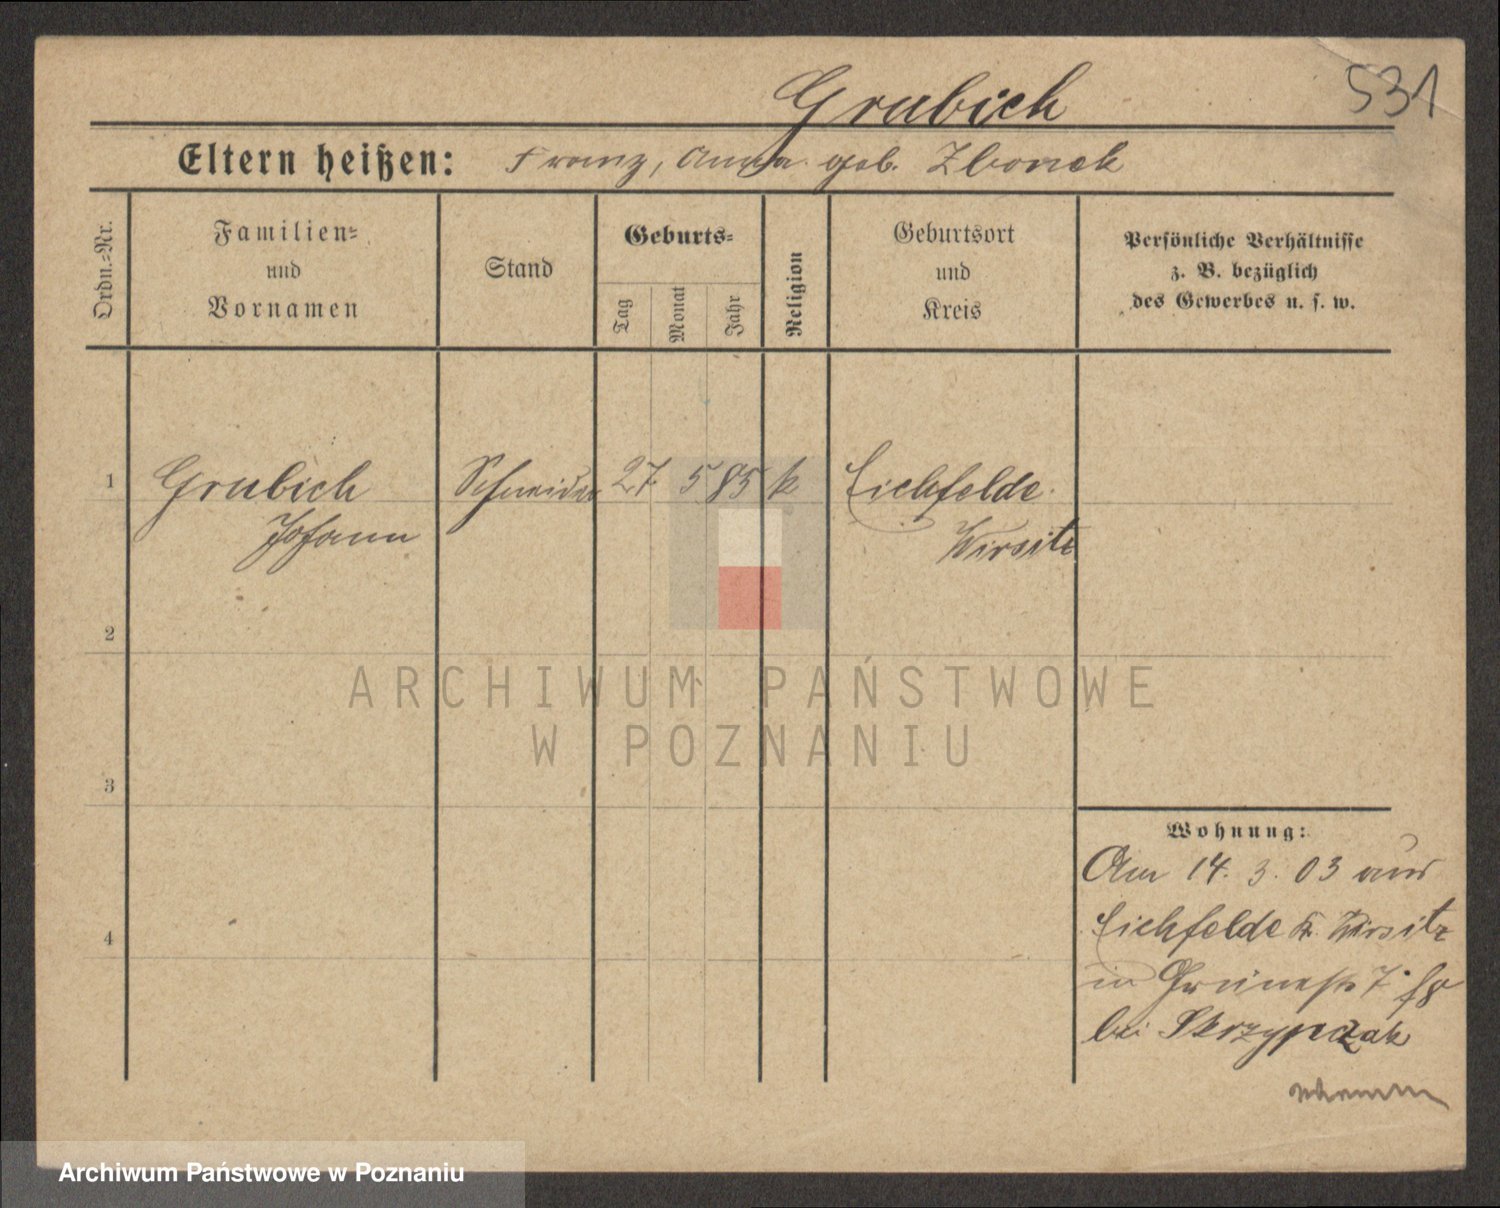 531
Grubich
Eltern heißen: Franz, Anna geb. Zbonek
Ordn.=Nr.
Familien=
und
Vornamen
Stand
Geburts=
Tag
Monat
Jahr
Religion
Geburtsort
und
Kreis
Persönliche Verhältnisse
z. B. bezüglich
des Gewerbes u. s. w.
1 Grubich Schneider 27. 5 85 k Eichfelde
Johann Wirsitz
2
ARCHIWUM PAŃSTWOWE
W POZNANIU
3
4
Wohnung:
Am 14. 3. 03 aus
Eichfelde Kr. Wirsitz
in Grünestr 7
bei Skrzypczak
Archiwum Państwowe w Poznaniu